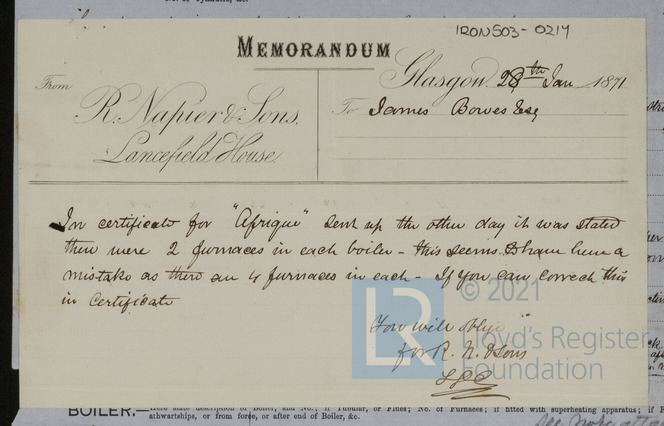 IRON503-0214
MEMORANDUM
Glasgow. 28th Jan 1871
From
R. Napier & Sons,
Lancefield House
To James Bowes Esq
In certificate for "Afrique" sent up the other day it was stated
there were 2 furnaces in each boiler - this seems to have been a
mistake as there are 4 furnaces in each - If you can correct this
in Certificate
You will oblige
for R. N. & Sons
© 2021
LR
Lloyd's Register
Foundation
BOILER.—Here state description of Boiler, and No.; if Tubular, or Flues; No. of Furnaces; if fitted with superheating apparatus; if
athwartships, or from fore, or after end of Boiler, &c.